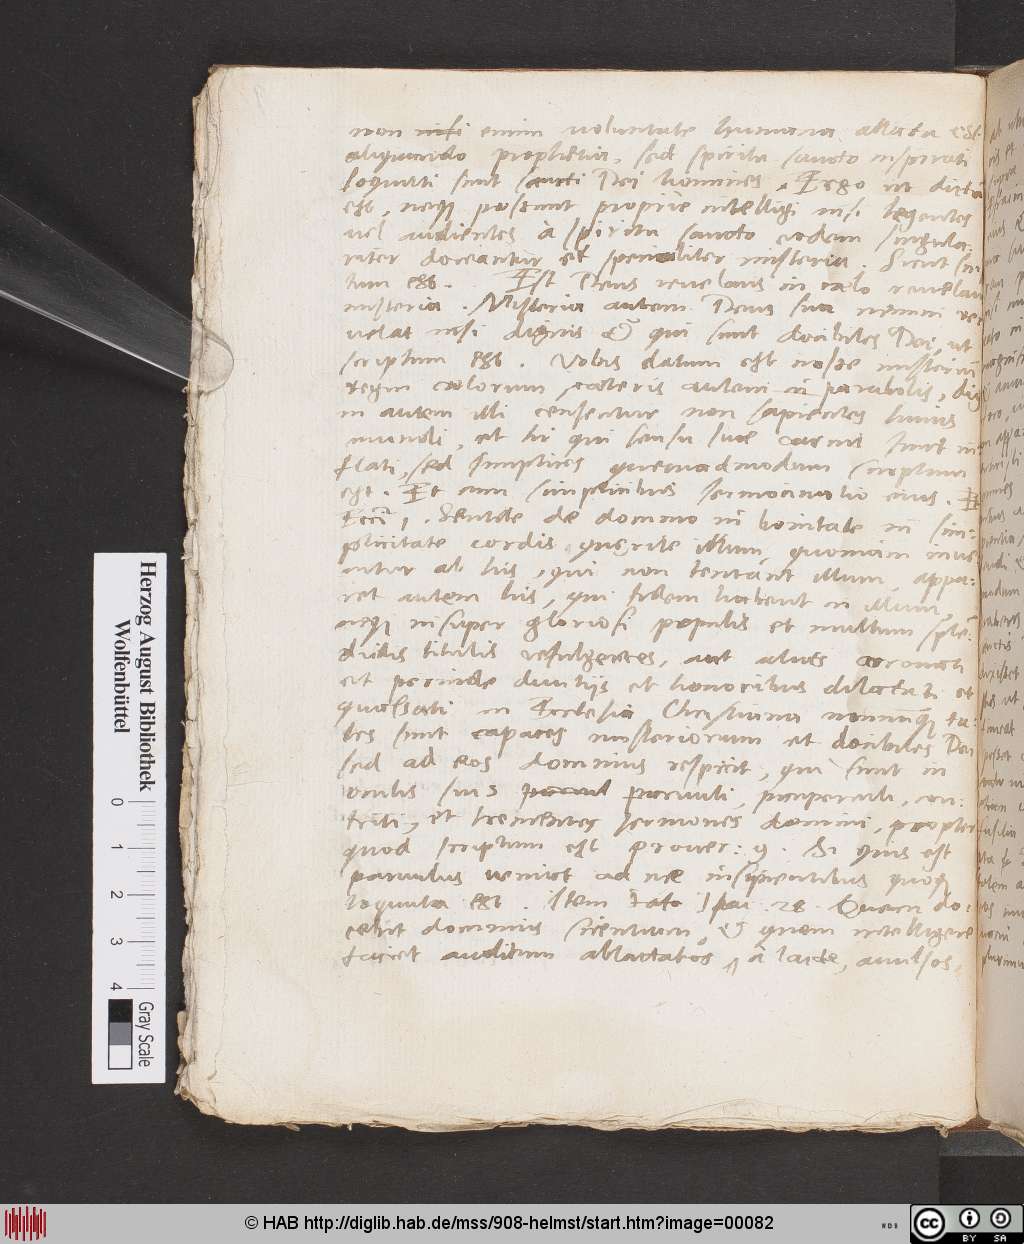 non nisi enim voluntate humana allata est
aliquando prophetia, sed spiritu sancto inspirati
loquuti sunt sancti Dei homines. Ergo ut dictū
est, neq; possunt proprie intelligi nisi legentes
vel audientes à spiritu sancto eodem singula
riter doceantur et specialiter misteria. Sicut scri
tum est. Est Deus revelans in cælo revelans
misteria. Misteria autem Deus sua nemini re
velat nisi dignis & qui sunt docibiles Dei, ut
scriptum est. Vobis datum est nosse misteriū
regni cælorum, cæteris autem in parabolis, dig
ni autem illi censentur non sapientes huius
mundi, et hi qui sensu suæ carnis sunt in
flati, sed simplices quemadmodum scriptum
est. Et cum simplicibus sermocinatio eius. Et
1. Sentite de domino in bonitate in sim:
plicitate cordis querite illum, quoniam inve
nitur ab his, qui non tentant illum, appa:
ret autem his, qui fidem habent in illum,
neq; insuper gloriosi populis et multum splē
didis titulis refulgentes, aut alias
et perinde divitijs et honoribus dilatati et
in Ecclesia Christiana nominiq; ta:
les sunt capaces misteriorum et docibiles Dei
sed ad eos dominus respicit, qui sunt in
oculis suis parvuli, pauperculi, con:
triti, et trementes sermones domini, propter
quod scriptum est Prover: 9. Si quis est
parvulus veniat ad me insipientibus quoq;
loquuta est. Item Isai. 28. Quem do:
cebit dominus scientiam, & quem intelligere
faciet auditum ablactatos à lacte, avulsos,
Herzog August Bibliothek
Wolfenbüttel
0 1 2 3 4
Gray Scale
© HAB http://diglib.hab.de/mss/908-helmst/start.htm?image=00082
WDB
cc BY SA